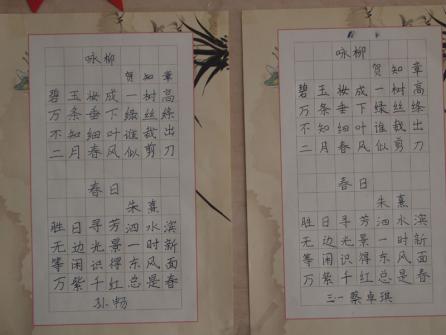 咏柳
贺知章
碧玉妆成一树高
万条垂下绿丝绦
不知细叶谁裁出
二月春风似剪刀
春日
朱熹
胜日寻芳泗水滨
无边光景一时新
等闲识得东风面
万紫千红总是春
孙畅
咏柳
贺知章
碧玉妆成一树高
万条垂下绿丝绦
不知细叶谁裁出
二月春风似剪刀
春日
朱熹
胜日寻芳泗水滨
无边光景一时新
等闲识得东风面
万紫千红总是春
三一蔡卓琪